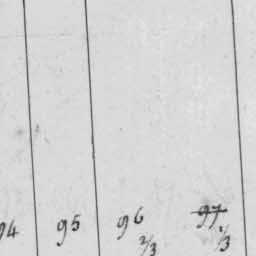 94 95 96 97
2/3 1/3